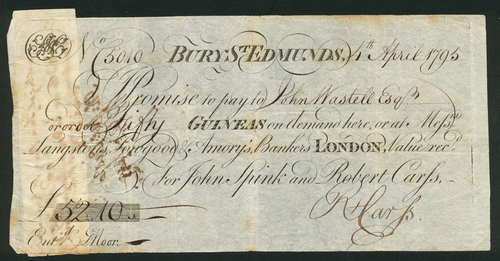 No C5010 BURY ST. EDMUNDS, 4th April 1795
I Promise to pay to John Wastell Esqr.
or order Fifty GUINEAS on demand here, or at Messrs.
Langston's, Towgood & Amory's, Bankers LONDON, Value recd.
For John Spink and Robert Carss,
£52.10
RtCarss.
Entd. Moor